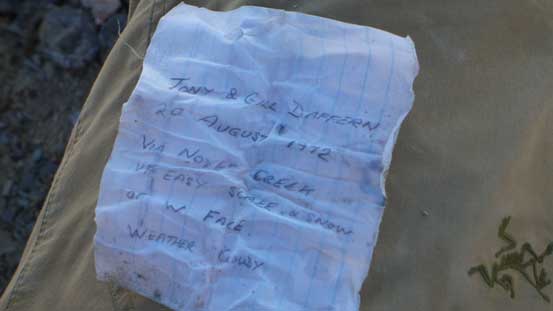 TONY & GILL DAFFERN
20 AUGUST 1972
VIA NOYES CREEK
UP EASY SCREE & SNOW
OF W. FACE
WEATHER CLOUDY